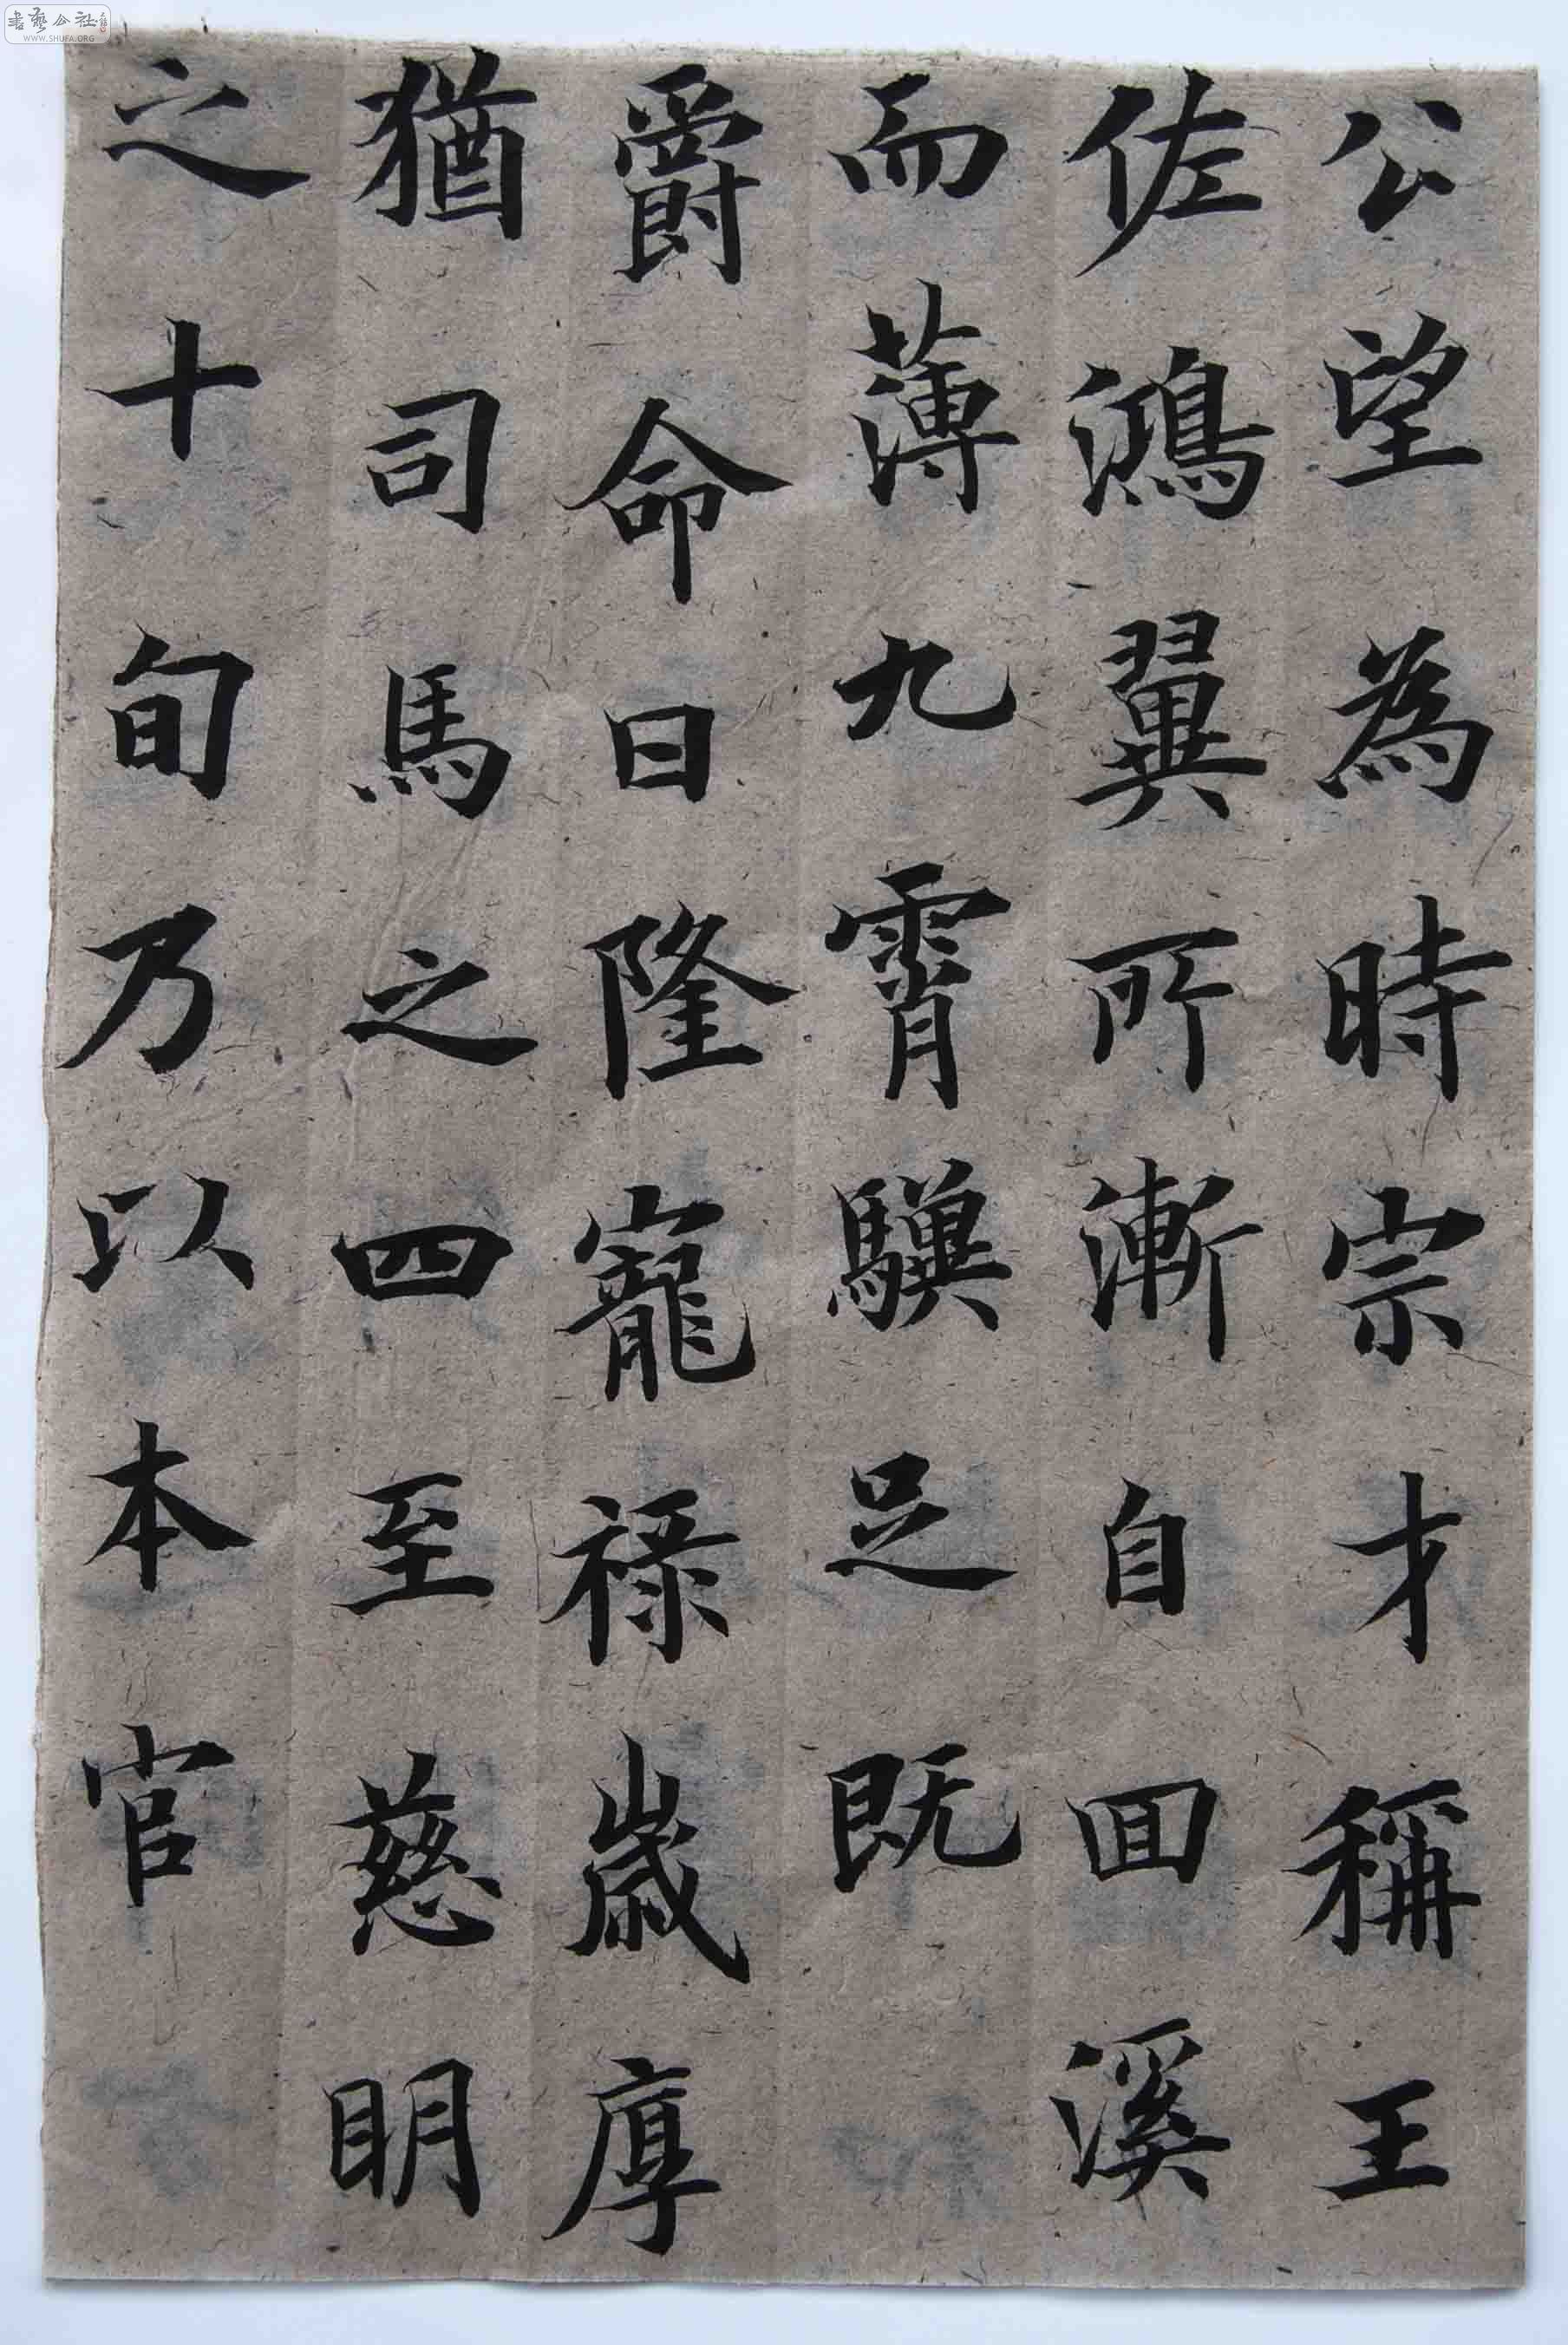 公望為時宗才稱王
佐鴻翼所漸自回溪
而薄九霄驥足既
爵命日隆寵祿歲厚
猶司馬之四至慈明
之十旬乃以本官
書藝公社
WWW.SHUFA.ORG